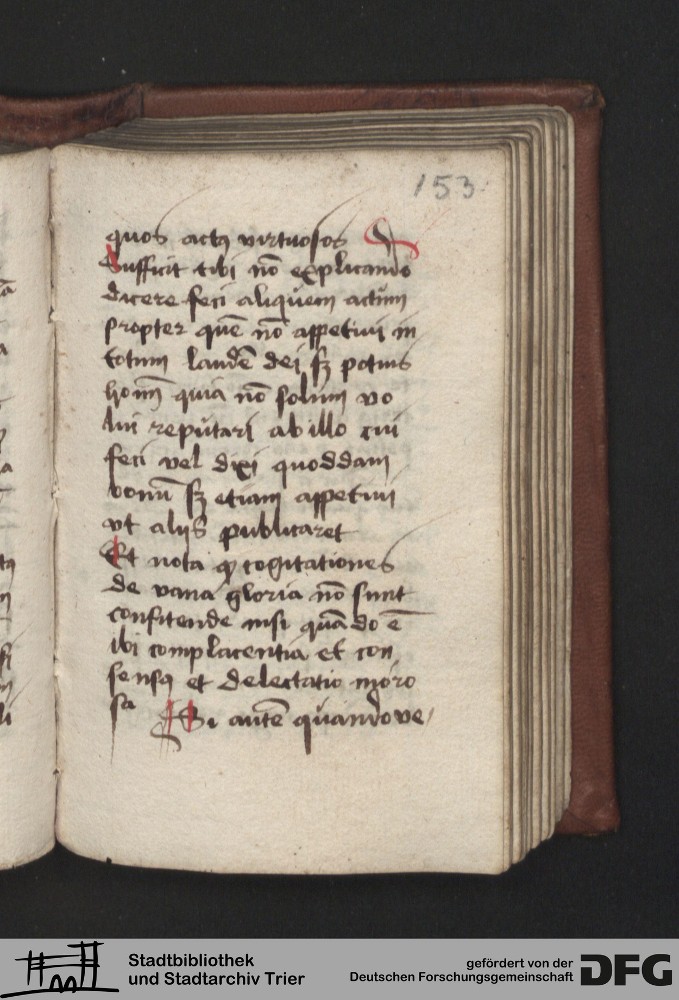 153
quos actꝯ virtuosos
Sufficit tibi nō explicando
dicere feci aliquem actum
propter quē nō appetiui in
totum laudē dei sꝫ potius
hoīm quia nō solum vo
lui reputari ab illo cui
feci vel dixi quoddam
bonū sꝫ etiam appetiui
vt aliis publicaret
Et nota ꝙ cogitationes
de vana gloria nō sunt
confitende nisi quādo ē
ibi complacentia et con
sensꝯ et delectatio moro
sa ¶ Si autē quando ve
Stadtbibliothek
und Stadtarchiv Trier
gefördert von der
Deutschen Forschungsgemeinschaft
DFG